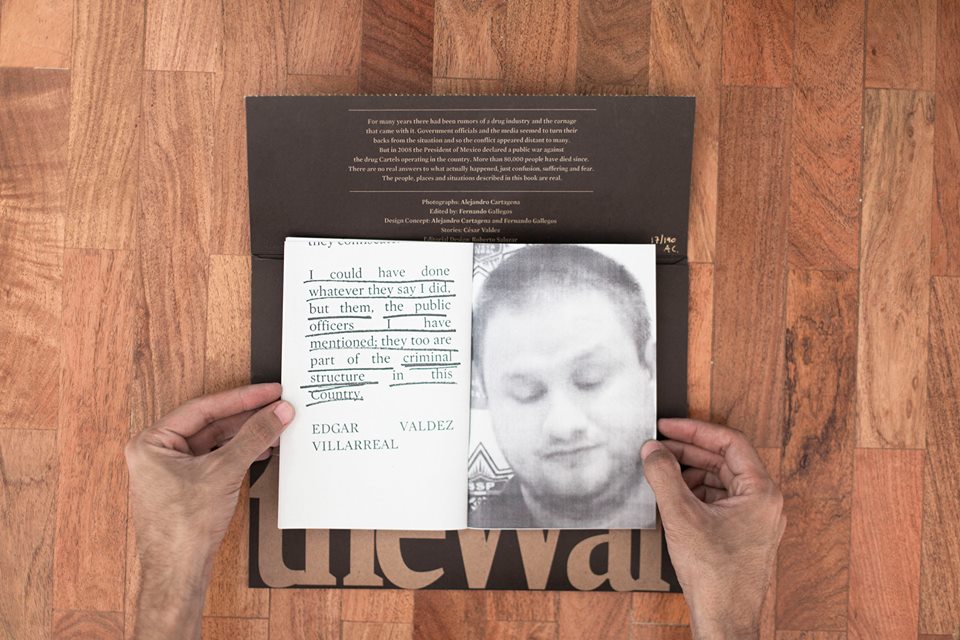 For many years there had been rumors of a drug industry and the carnage
that came with it. Government officials and the media seemed to turn their
backs from the situation and so the conflict appeared distant to many.
But in 2008 the President of Mexico declared a public war against
the drug Cartels operating in the country. More than 80,000 people have died since.
There are no real answers to what actually happened, just confusion, suffering and fear.
The people, places and situations described in this book are real.
Photographs: Alejandro Cartagena
Edited by: Fernando Gallegos
Design Concept: Alejandro Cartagena and Fernando Gallegos
Stories: César Valdez
Editorial Design: Roberto Salazar
17/190
A.C.
I could have done
whatever they say I did,
but them, the public
officers I have
mentioned; they too are
part of the criminal
structure in this
Country.
EDGAR VALDEZ
VILLARREAL
SSP
thewar